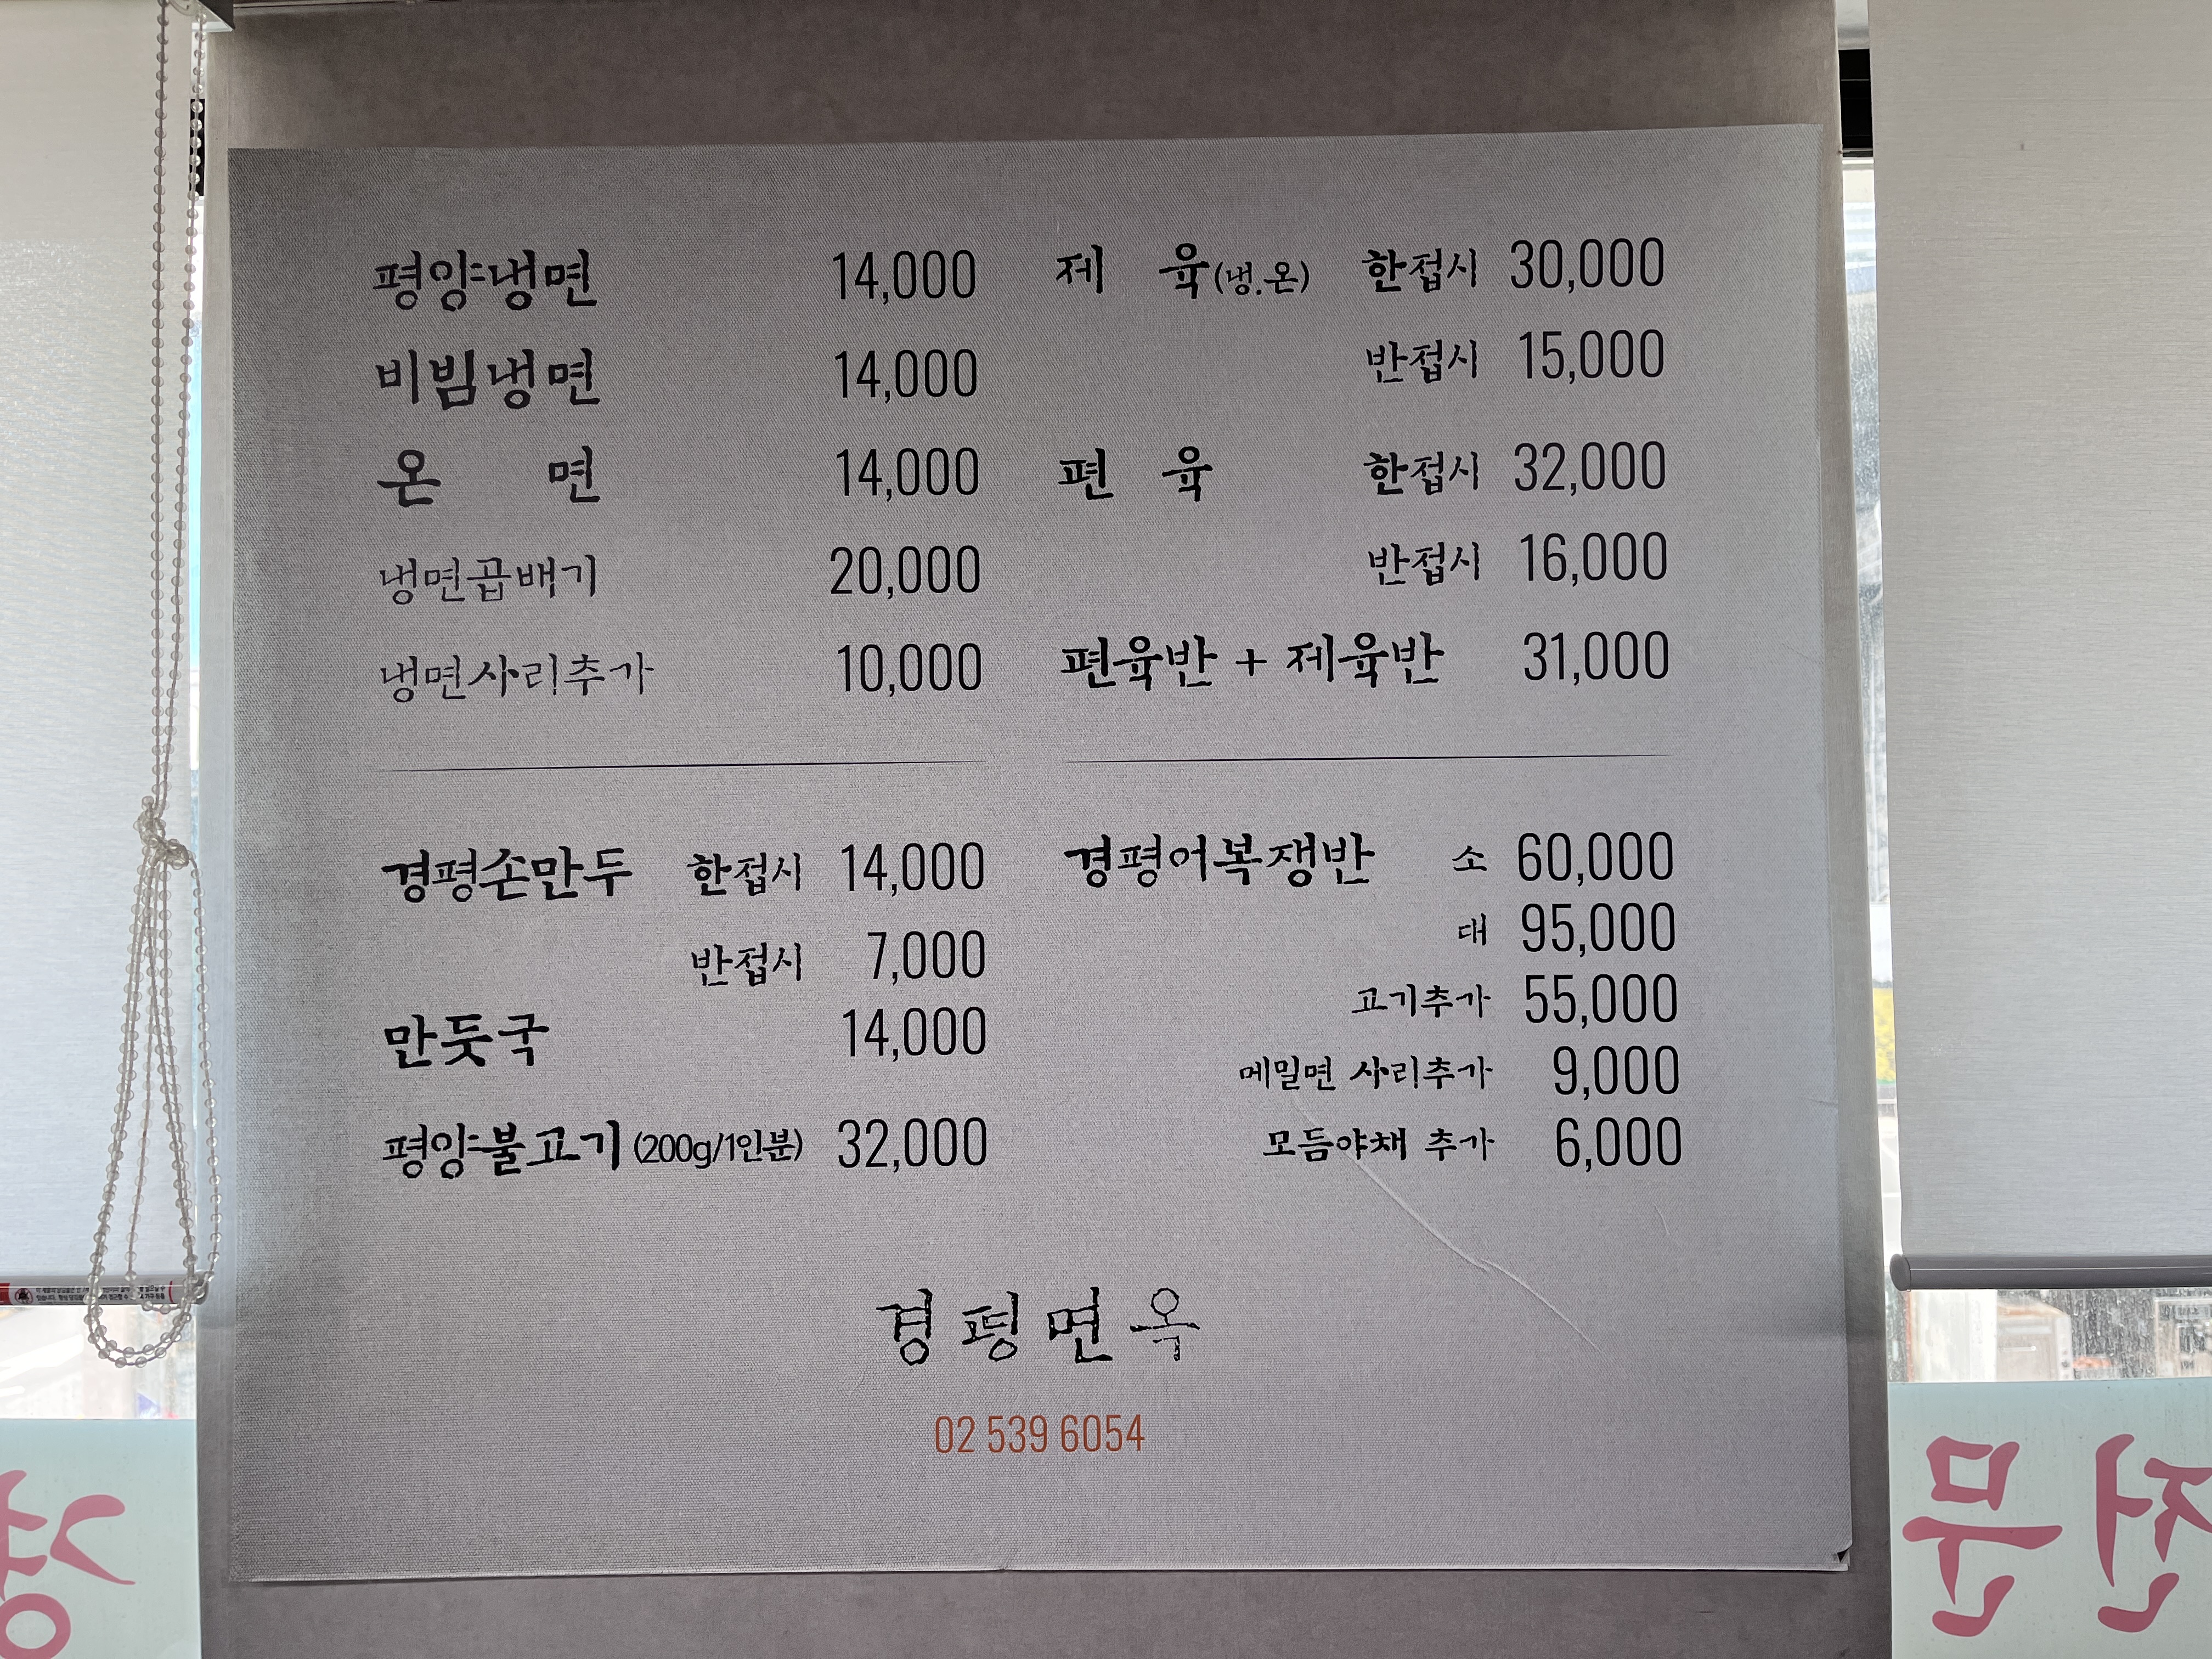 평양냉면 14,000
비빔냉면 14,000
온 면 14,000
냉면곱배기 20,000
냉면사리추가 10,000
제 육(냉.온) 한접시 30,000
반접시 15,000
편 육 한접시 32,000
반접시 16,000
편육반 + 제육반 31,000
경평손만두 한접시 14,000
반접시 7,000
만둣국 14,000
평양불고기 (200g/1인분) 32,000
경평어복쟁반 소 60,000
대 95,000
고기추가 55,000
메밀면 사리추가 9,000
모듬야채 추가 6,000
경평면옥
02 539 6054
전문